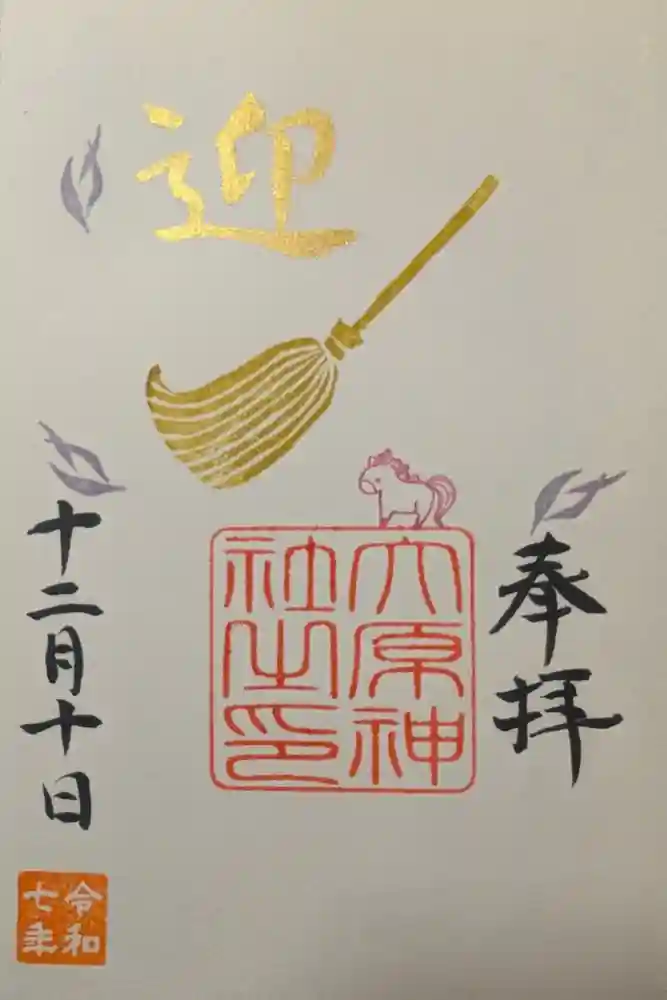 奉拝
迎
大原神
社之印
十二月十日
令和
七年